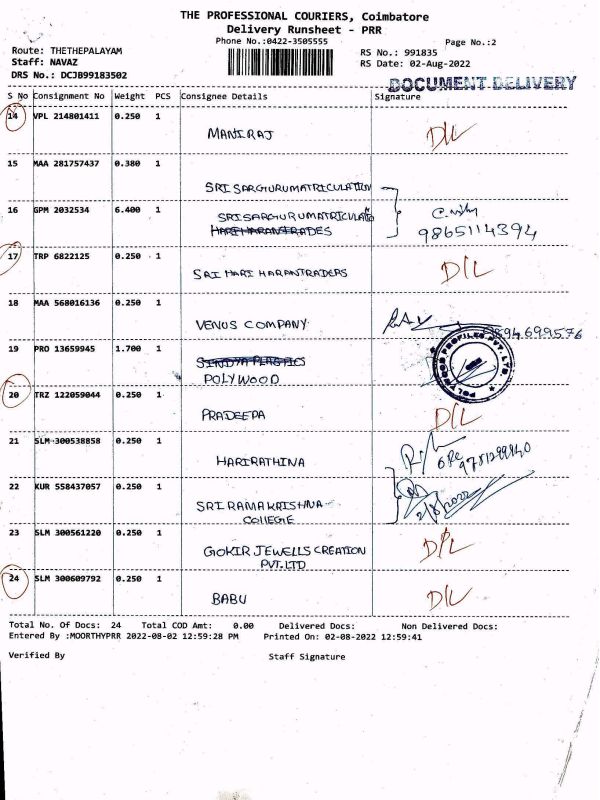 THE PROFESSIONAL COURIERS, Coimbatore
Delivery Runsheet - PRR
Phone No.:0422-3505555 Page No.:2
Route: THETHEPALAYAM RS No.: 991835
Staff: NAVAZ RS Date: 02-Aug-2022
DRS No.: DCJB99183502
DOCUMENT DELIVERY
S No Consignment No Weight PCS Consignee Details Signature
14 VPL 214801411 0.250 1 MANIRAJ D/L
15 MAA 281757437 0.380 1 SRI SARGURUMATRICULATION
16 GPM 2032534 6.400 1 SRISARGURUMATRICULATIO
HARIHARANTRADES 9865114394
17 TRP 6822125 0.250 1 SRI HARI HARANTRADERS D/L
18 MAA 568016136 0.250 1 VENUS COMPANY 9894699576
19 PRO 13659945 1.700 1 SINDYA PLASTICS
POLYWOOD POLYWOOD PROFILES PVT. LTD.
20 TRZ 122059044 0.250 1 PRADEEPA D/L
21 SLM 300538858 0.250 1 HARIRATHINA
22 KUR 558437057 0.250 1 SRI RAMAKRISHNA
COLLEGE 2/8/2022
23 SLM 300561220 0.250 1 GOKIR JEWELLS CREATION D/L
PVT.LTD
24 SLM 300609792 0.250 1 BABU D/L
Total No. Of Docs: 24 Total COD Amt: 0.00 Delivered Docs: Non Delivered Docs:
Entered By :MOORTHYPRR 2022-08-02 12:59:28 PM Printed On: 02-08-2022 12:59:41
Verified By Staff Signature